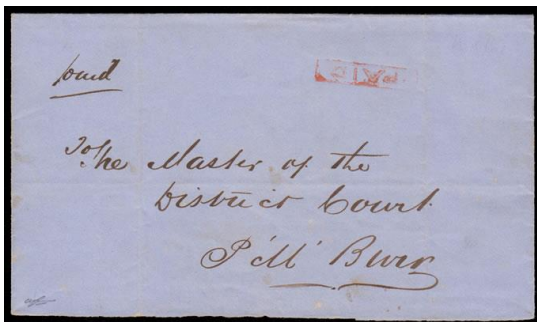 paid
PAID
To the Master of the
District Court
P'M' Burg